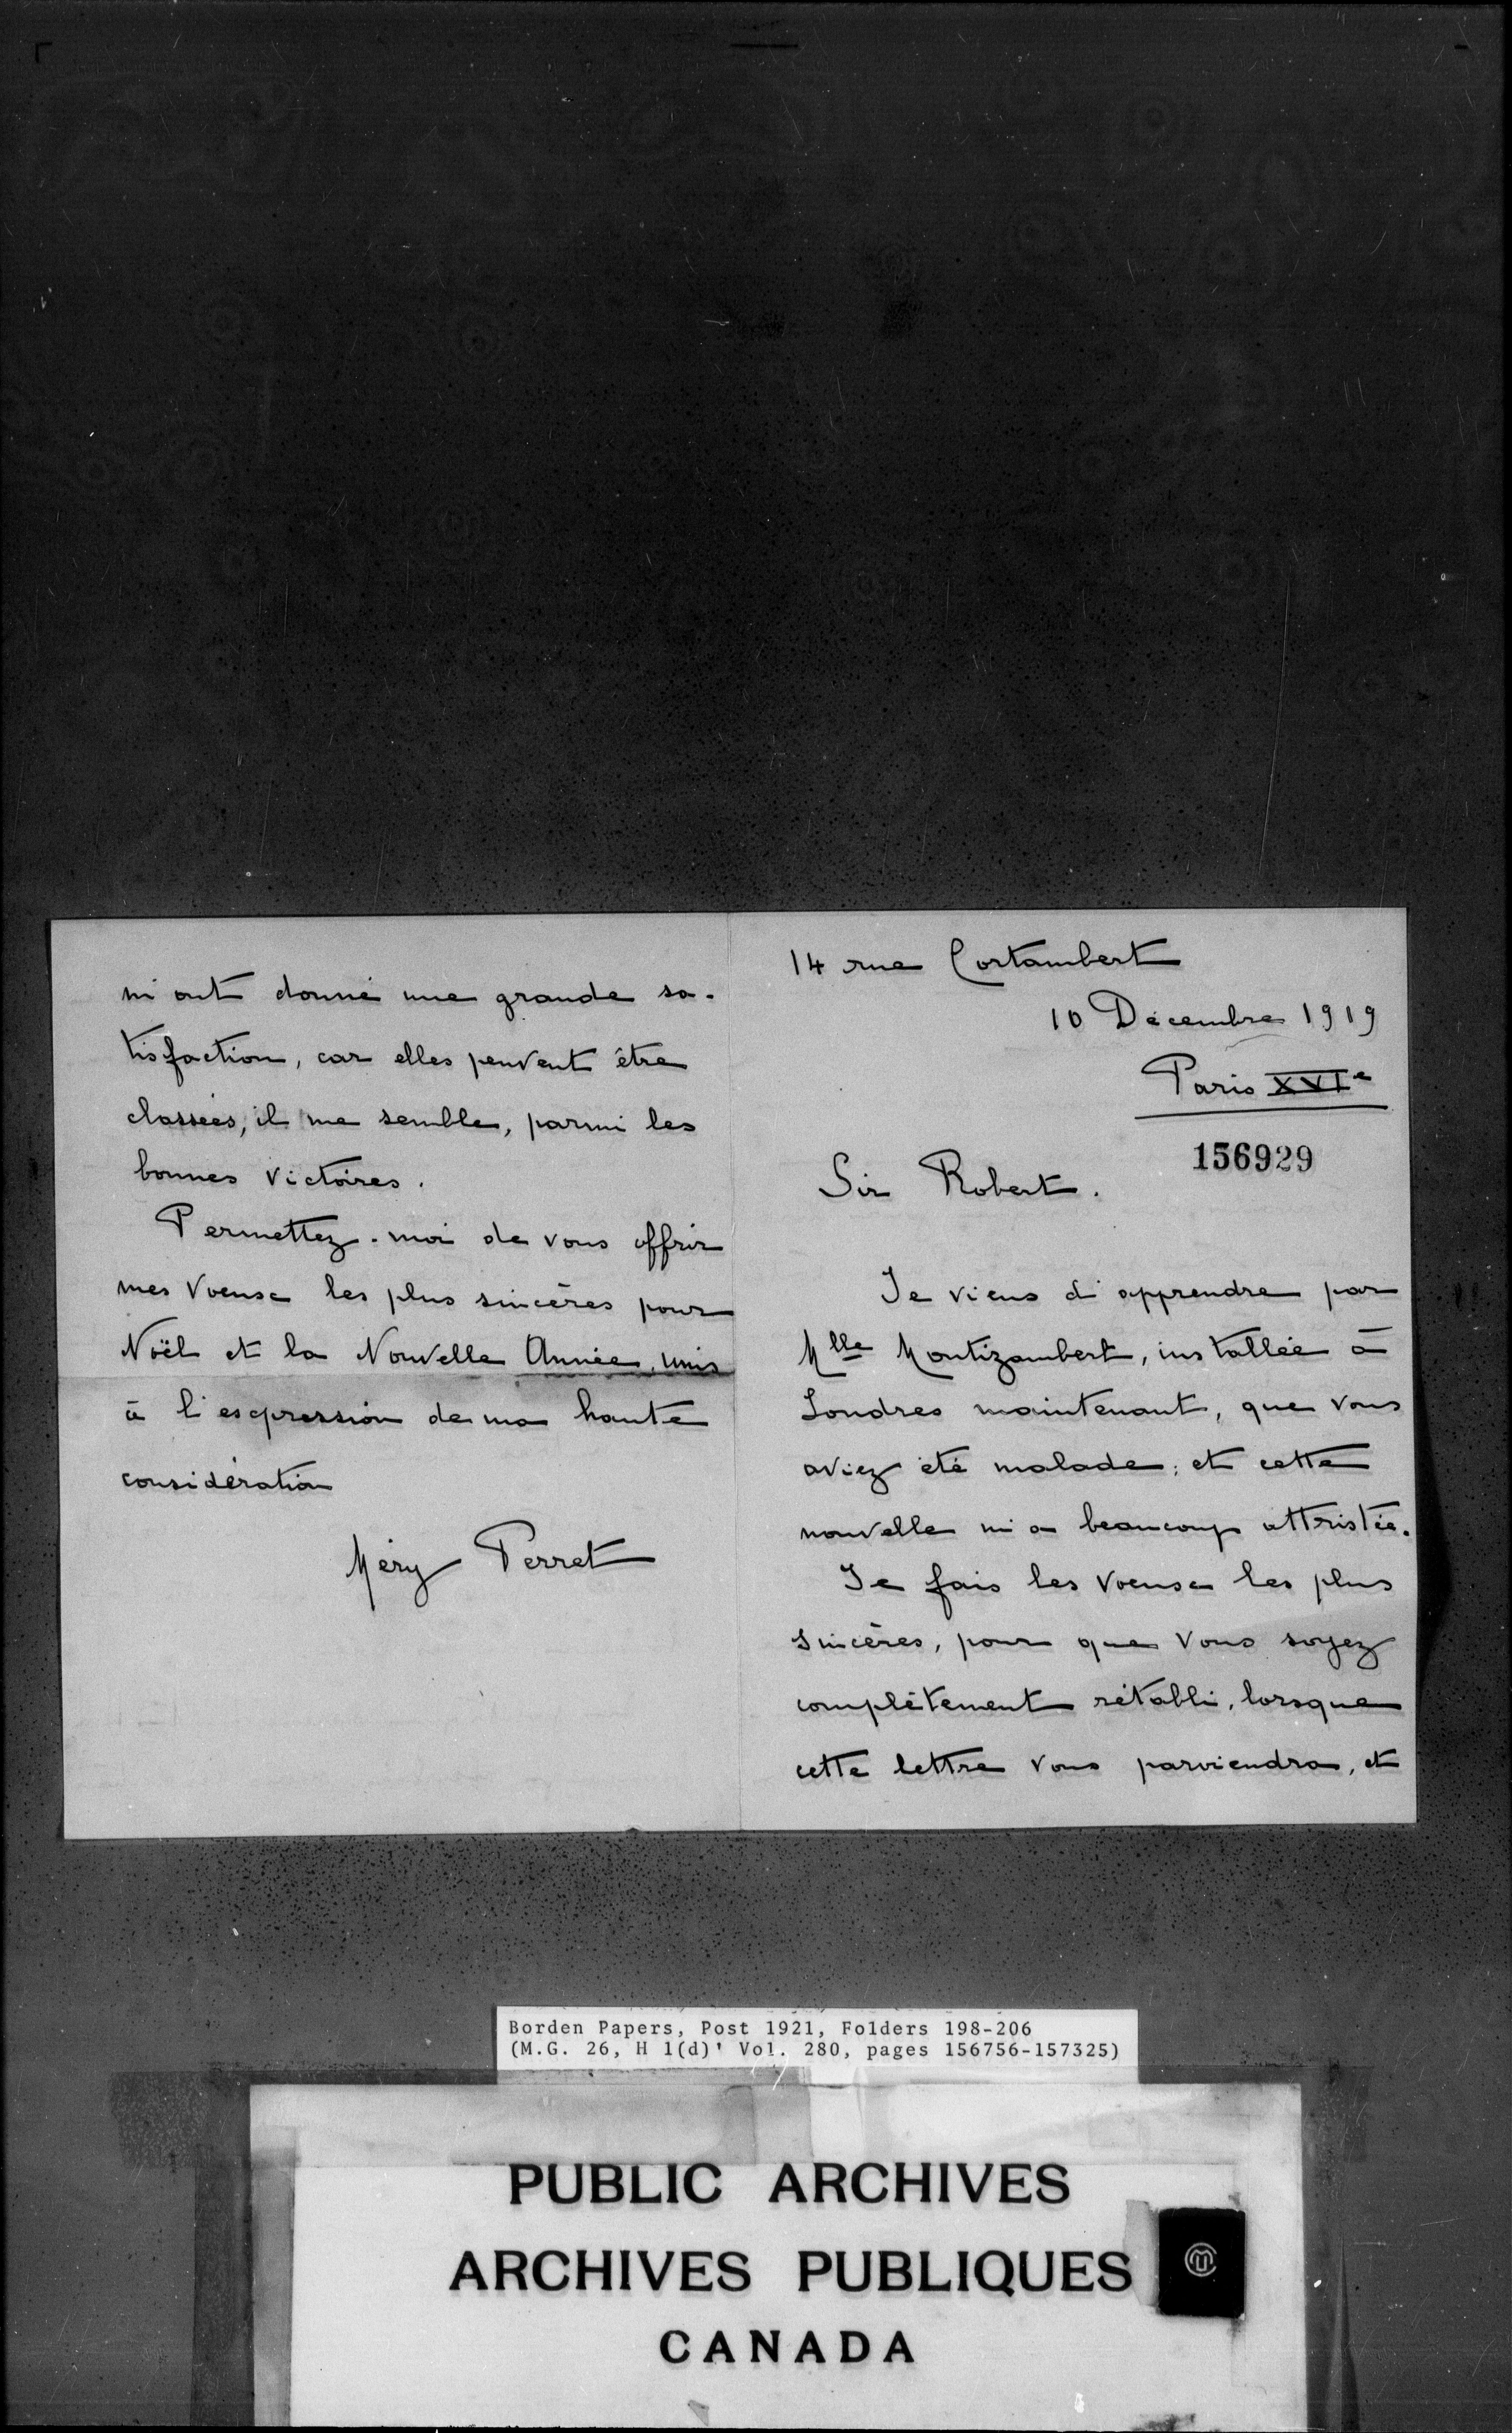 14 rue Cortambert
10 Décembre 1919
Paris XVIe
156929
Sir Robert.
Je viens d'apprendre par
Mlle Montizambert, installée à
Londres maintenant, que vous
aviez été malade; et cette
nouvelle m'a beaucoup attristée.
Je fais les voeux les plus
sincères, pour que vous soyez
complètement rétabli, lorsque
cette lettre vous parviendra, et
m'ont donné une grande sa-
tisfaction, car elles peuvent être
classées, il me semble, parmi les
bonnes victoires.
Permettez-moi de vous offrir
mes voeux les plus sincères pour
Noël et la Nouvelle Année, unis
à l'expression de ma haute
considération
Méry Perret
Borden Papers, Post 1921, Folders 198-206
(M.G. 26, H 1(d)' Vol. 280, pages 156756-157325)
PUBLIC ARCHIVES
ARCHIVES PUBLIQUES
CANADA